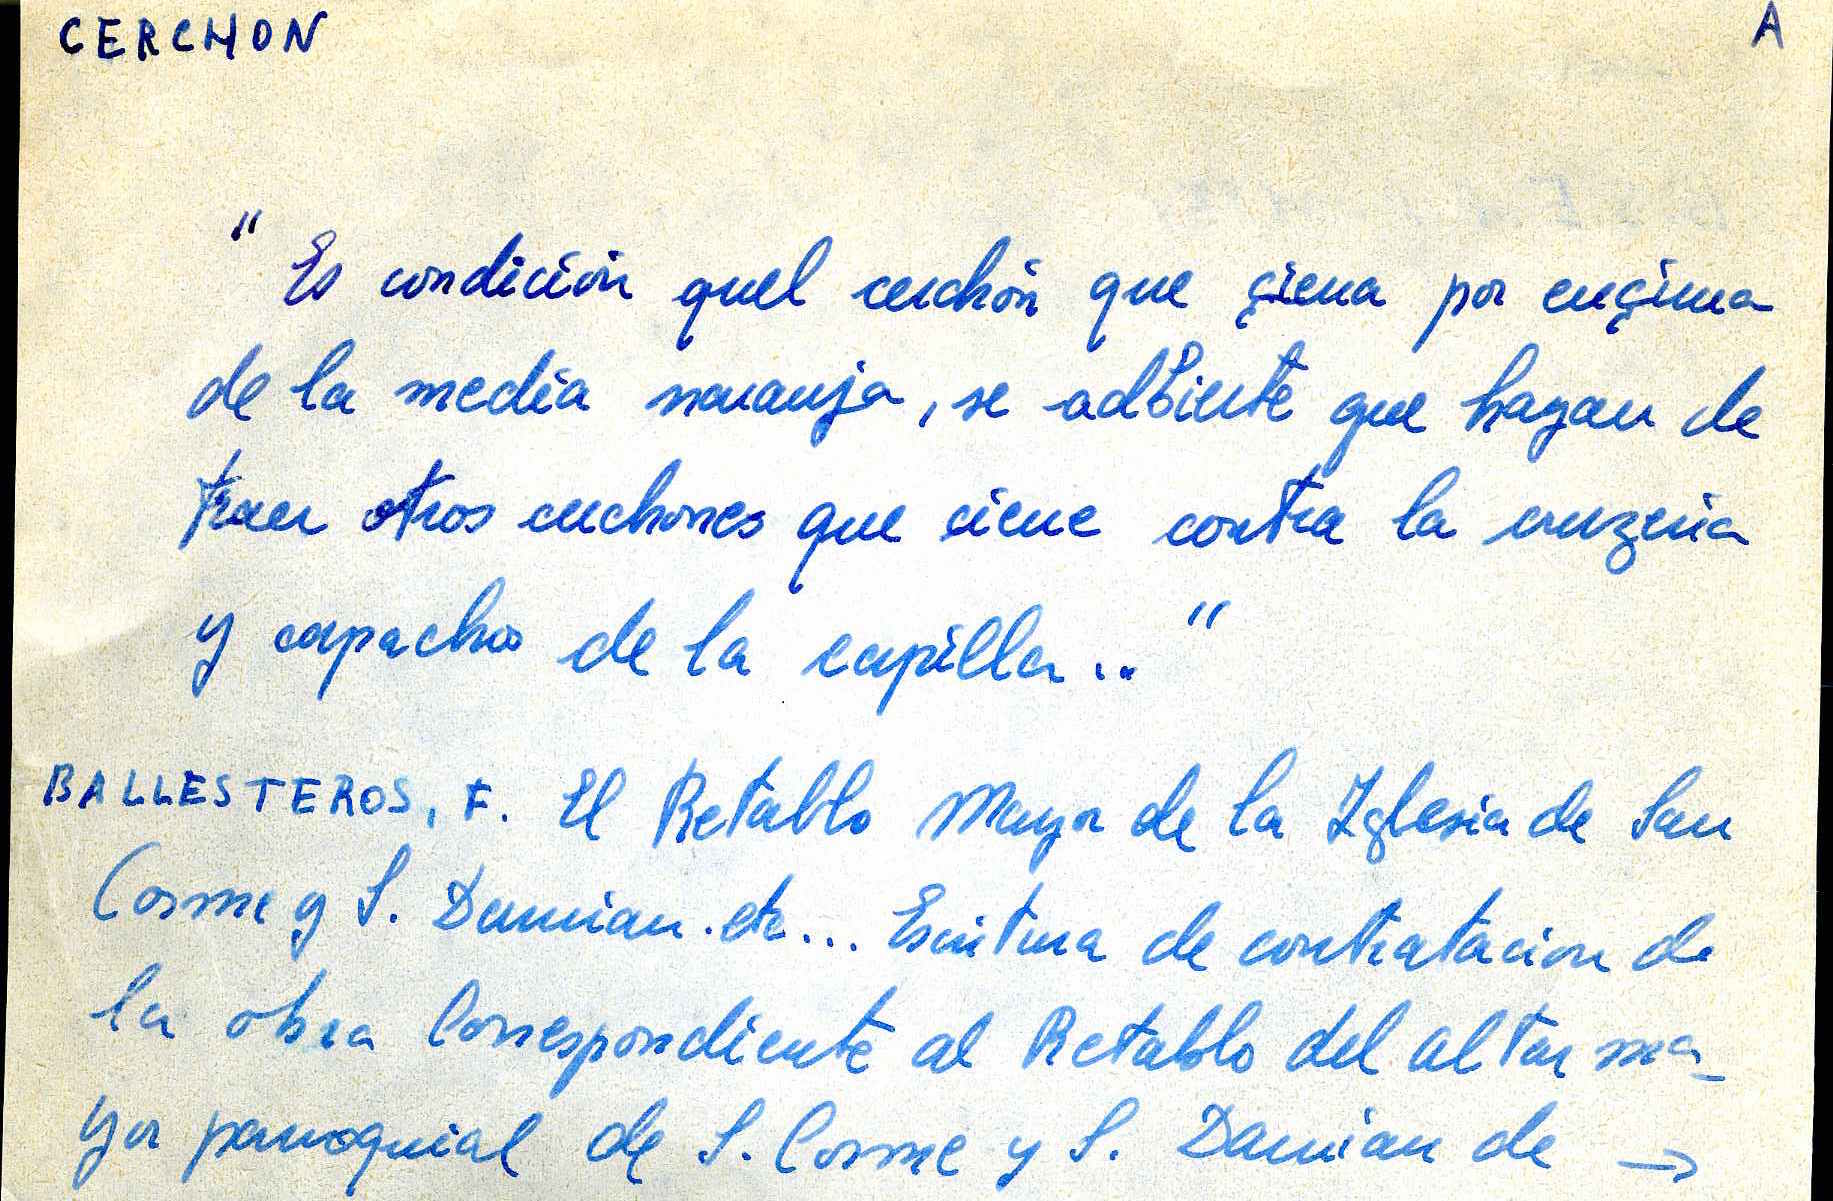 CERCHON A
"Es condición quel cerchón que çierra por ençima
de la media naranja, se adbierte que hayan de
traer otros cerchones que cierre contra la cruzeria
y capachos de la capilla..."
BALLESTEROS, F. El Retablo Mayor de la Iglesia de San
Cosme y S. Damian. etc... Escritura de contratacion de
la obra Correspondiente al Retablo del altar ma_
yor parroquial de S. Cosme y S. Damian de →